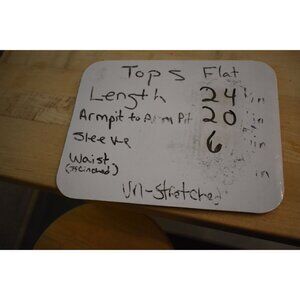 Tops Flat
Length 24 in
Armpit to Arm Pit 20 in
Sleeve 6 in
Waist in
(if cinched)
Un-Stretched